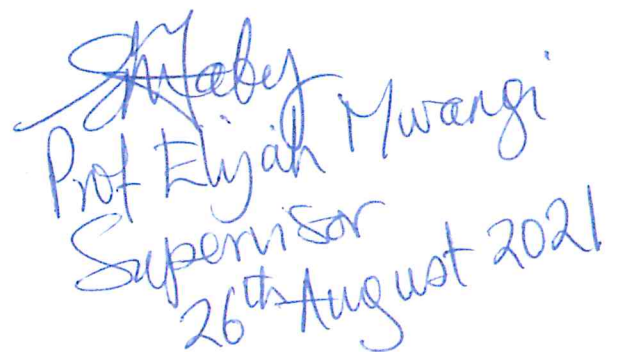 Prof Elijah Mwangi
Supervisor
26th August 2021